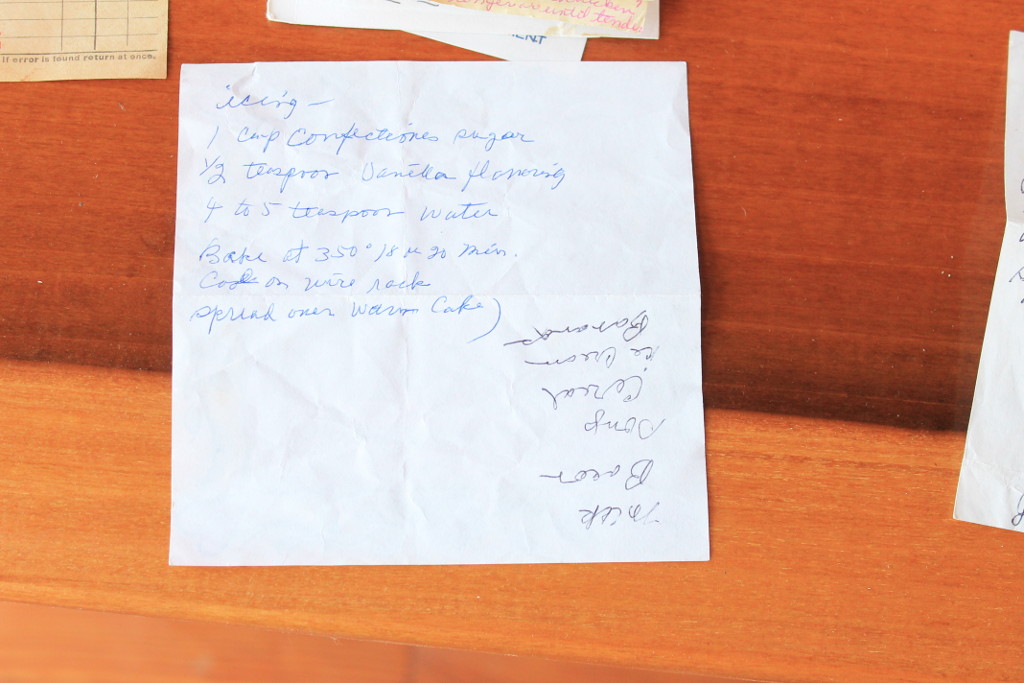 if error is found return at once.
until tender
MENT
icing —
1 cup Confectiones sugar
1/2 teaspoon Vanilla flavoring
4 to 5 teaspoon Water
Bake at 350° 18 or 20 min.
Cool on wire rack
spread over Warm Cake)
Milk
Bacon
Soup
Cereal
ice Cream
Bananas